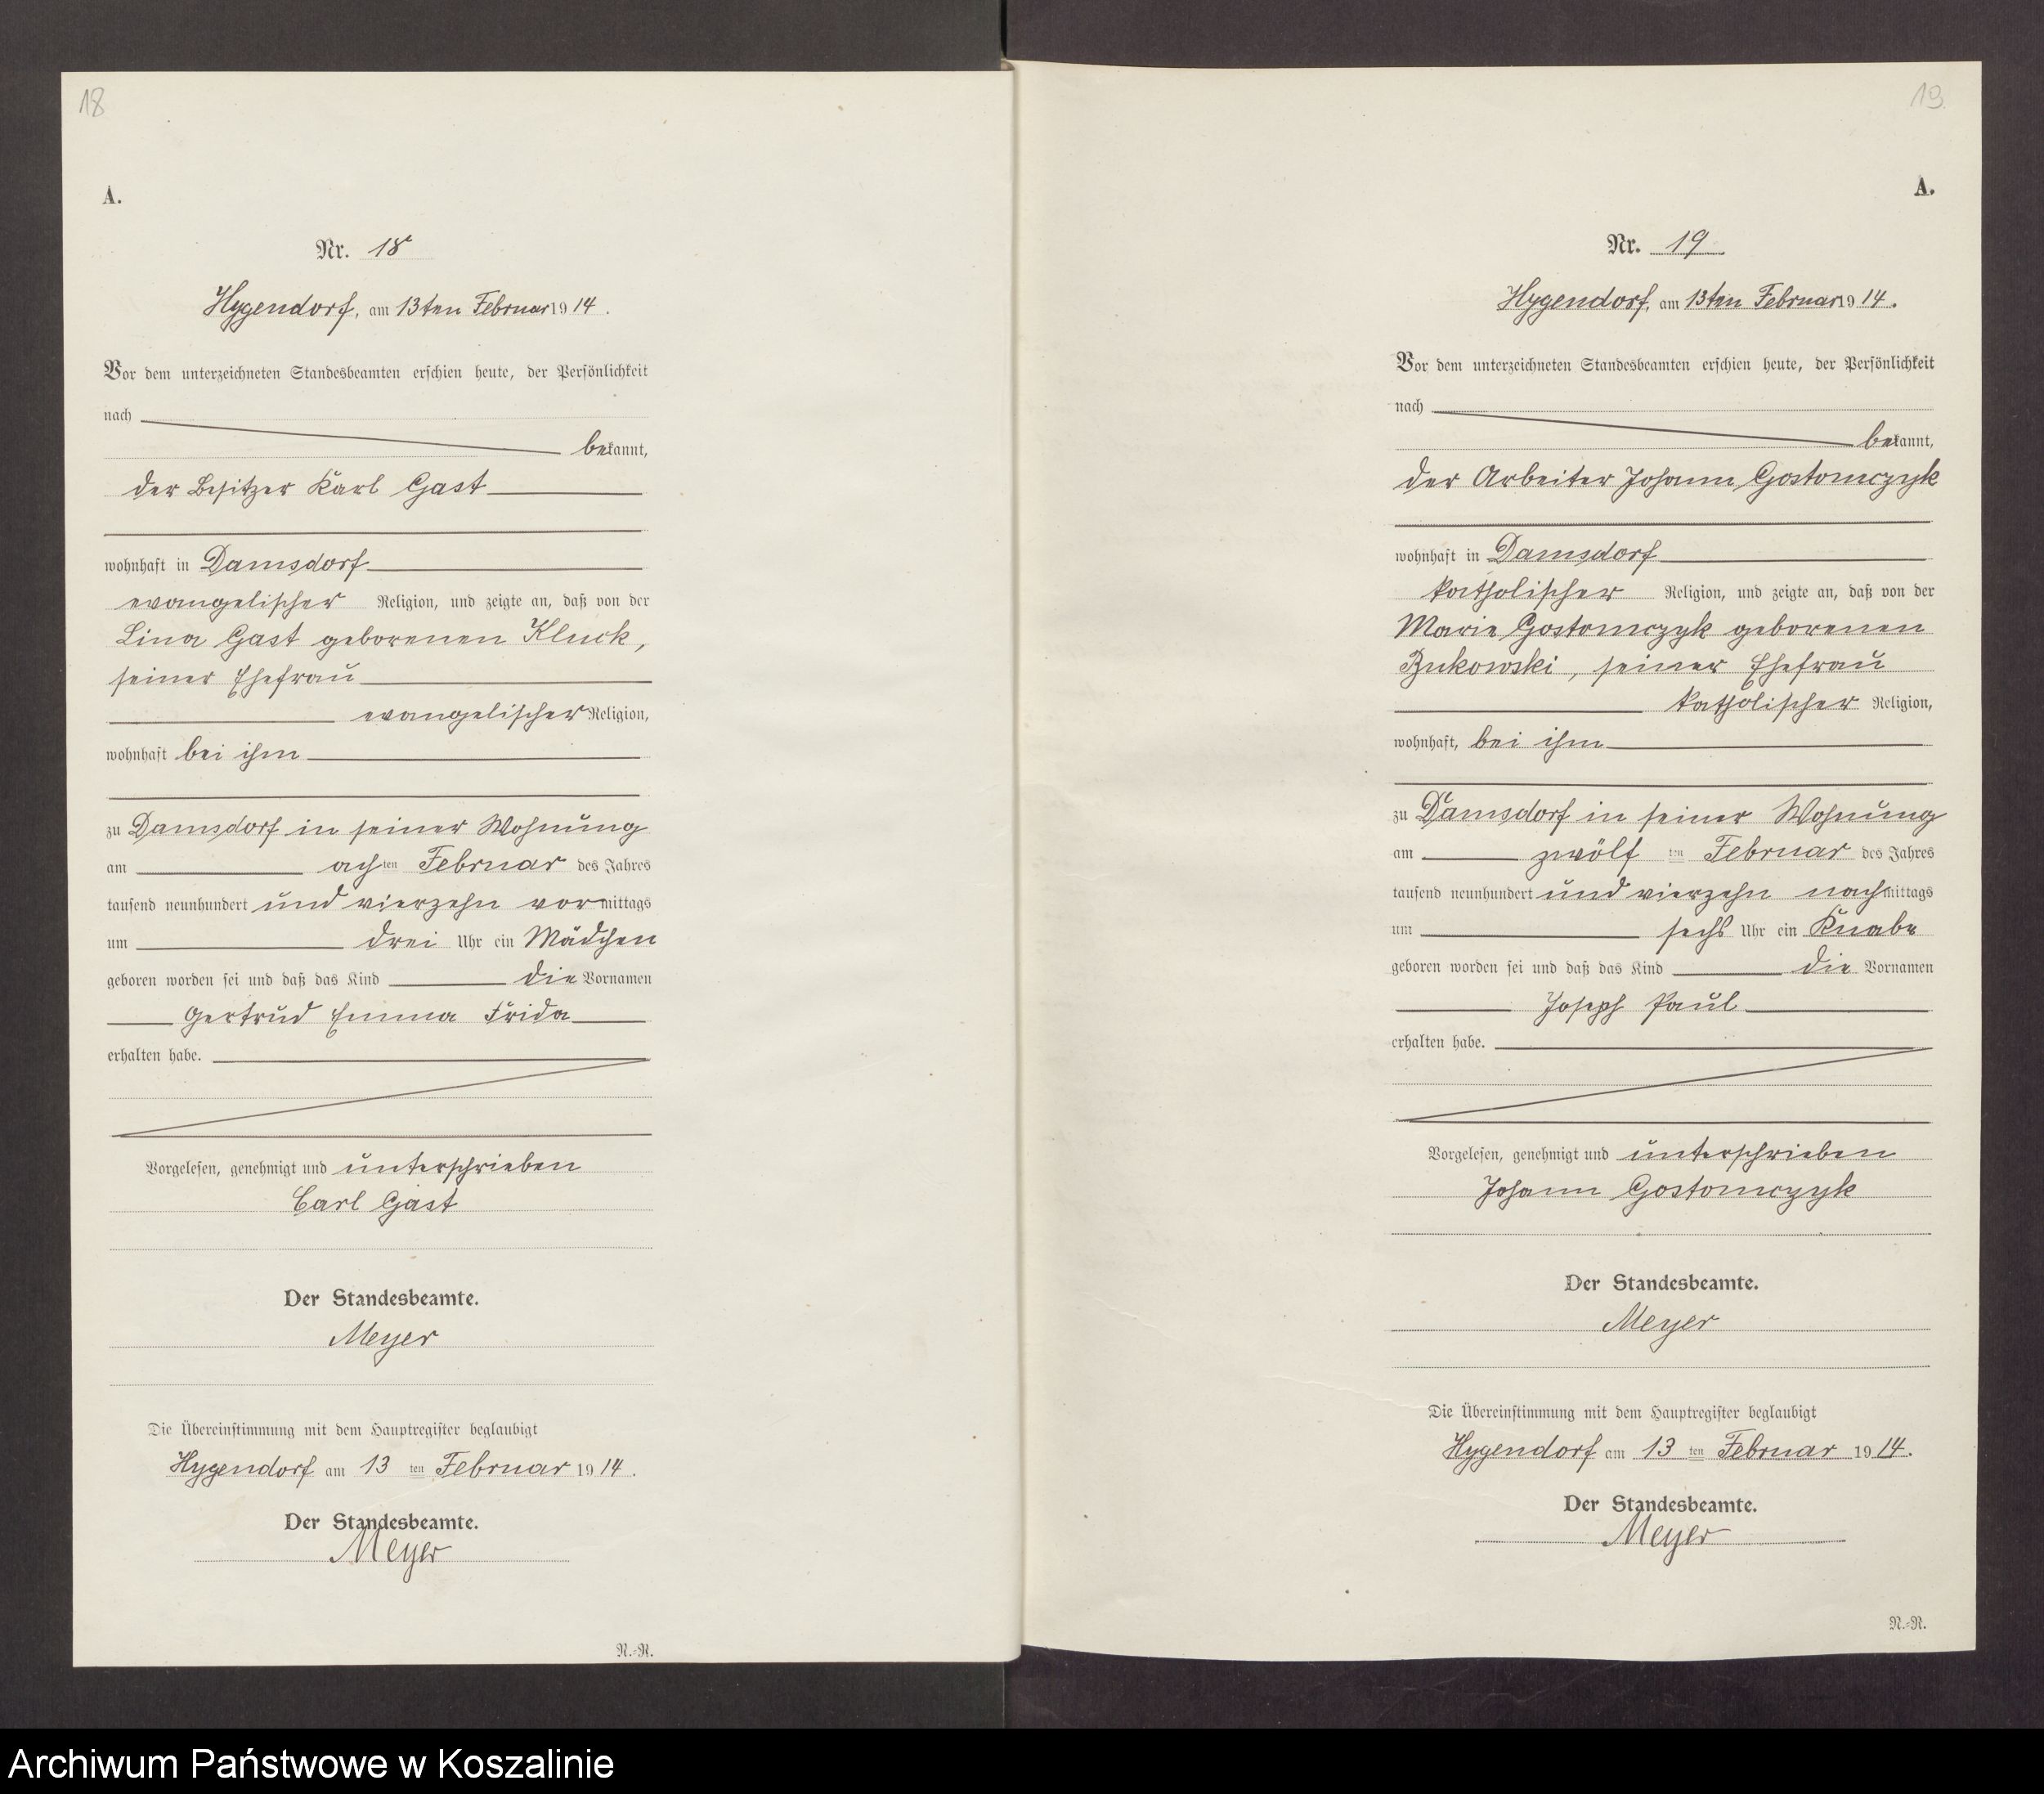 18
A.
Nr. 18
Hygendorf, am 13ten Februar 1914.
Vor dem unterzeichneten Standesbeamten erschien heute, der Persönlichkeit
nach
bekannt,
der Besitzer Karl Gast
wohnhaft in Damsdorf
evangelischer Religion, und zeigte an, daß von der
Lina Gast geborenen Kluck,
seiner Ehefrau
evangelischer Religion,
wohnhaft bei ihm
zu Damsdorf in seiner Wohnung
am achten Februar des Jahres
tausend neunhundert und vierzehn vormittags
um drei Uhr ein Mädchen
geboren worden sei und daß das Kind die Vornamen
Gertrud Emma Frida
erhalten habe.
Vorgelesen, genehmigt und unterschrieben
Carl Gast
Der Standesbeamte.
Meyer
Die Übereinstimmung mit dem Hauptregister beglaubigt
Hygendorf am 13 ten Februar 1914.
Der Standesbeamte.
Meyer
N.=N.
19
A.
Nr. 19
Hygendorf, am 13ten Februar 1914.
Vor dem unterzeichneten Standesbeamten erschien heute, der Persönlichkeit
nach
bekannt,
der Arbeiter Johann Gostomczyk
wohnhaft in Damsdorf
katholischer Religion, und zeigte an, daß von der
Marie Gostomczyk geborenen
Bukowski, seiner Ehefrau
katholischer Religion,
wohnhaft, bei ihm
zu Damsdorf in seiner Wohnung
am zwölf ten Februar des Jahres
tausend neunhundert und vierzehn nachmittags
um sechs Uhr ein Knabe
geboren worden sei und daß das Kind die Vornamen
Joseph Paul
erhalten habe.
Vorgelesen, genehmigt und unterschrieben
Johann Gostomczyk
Der Standesbeamte.
Meyer
Die Übereinstimmung mit dem Hauptregister beglaubigt
Hygendorf am 13 ten Februar 1914.
Der Standesbeamte.
Meyer
N.=N.
Archiwum Państwowe w Koszalinie